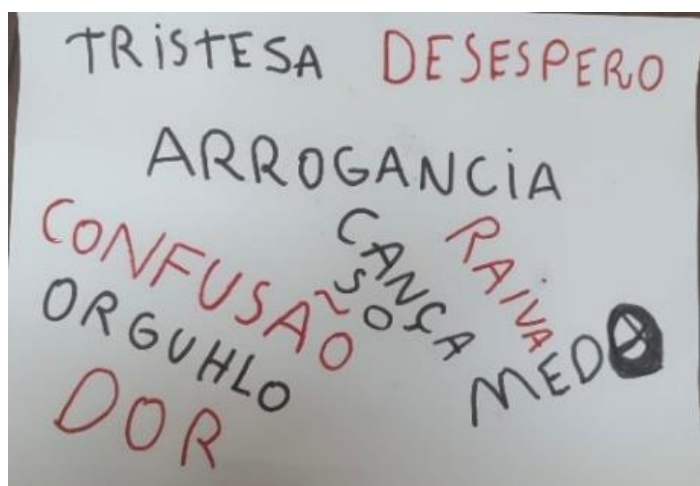 TRiSTESA DESESPERO
ARROGANCiA
CONFUSÃO
CANÇA
SO
RAiVA
ORGUHLO
MEDO
DOR